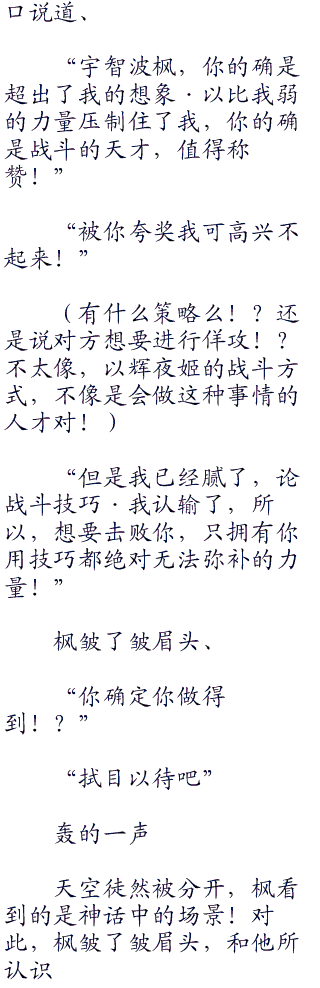 口说道、
“宇智波枫，你的确是
超出了我的想象·以比我弱
的力量压制住了我，你的确
是战斗的天才，值得称
赞！”
“被你夸奖我可高兴不
起来！”
（有什么策略么！？还
是说对方想要进行佯攻！？
不太像，以辉夜姬的战斗方
式，不像是会做这种事情的
人才对！）
“但是我已经腻了，论
战斗技巧·我认输了，所
以，想要击败你，只拥有你
用技巧都绝对无法弥补的力
量！”
枫皱了皱眉头、
“你确定你做得
到！？”
“拭目以待吧”
轰的一声
天空徒然被分开，枫看
到的是神话中的场景！对
此，枫皱了皱眉头，和他所
认识